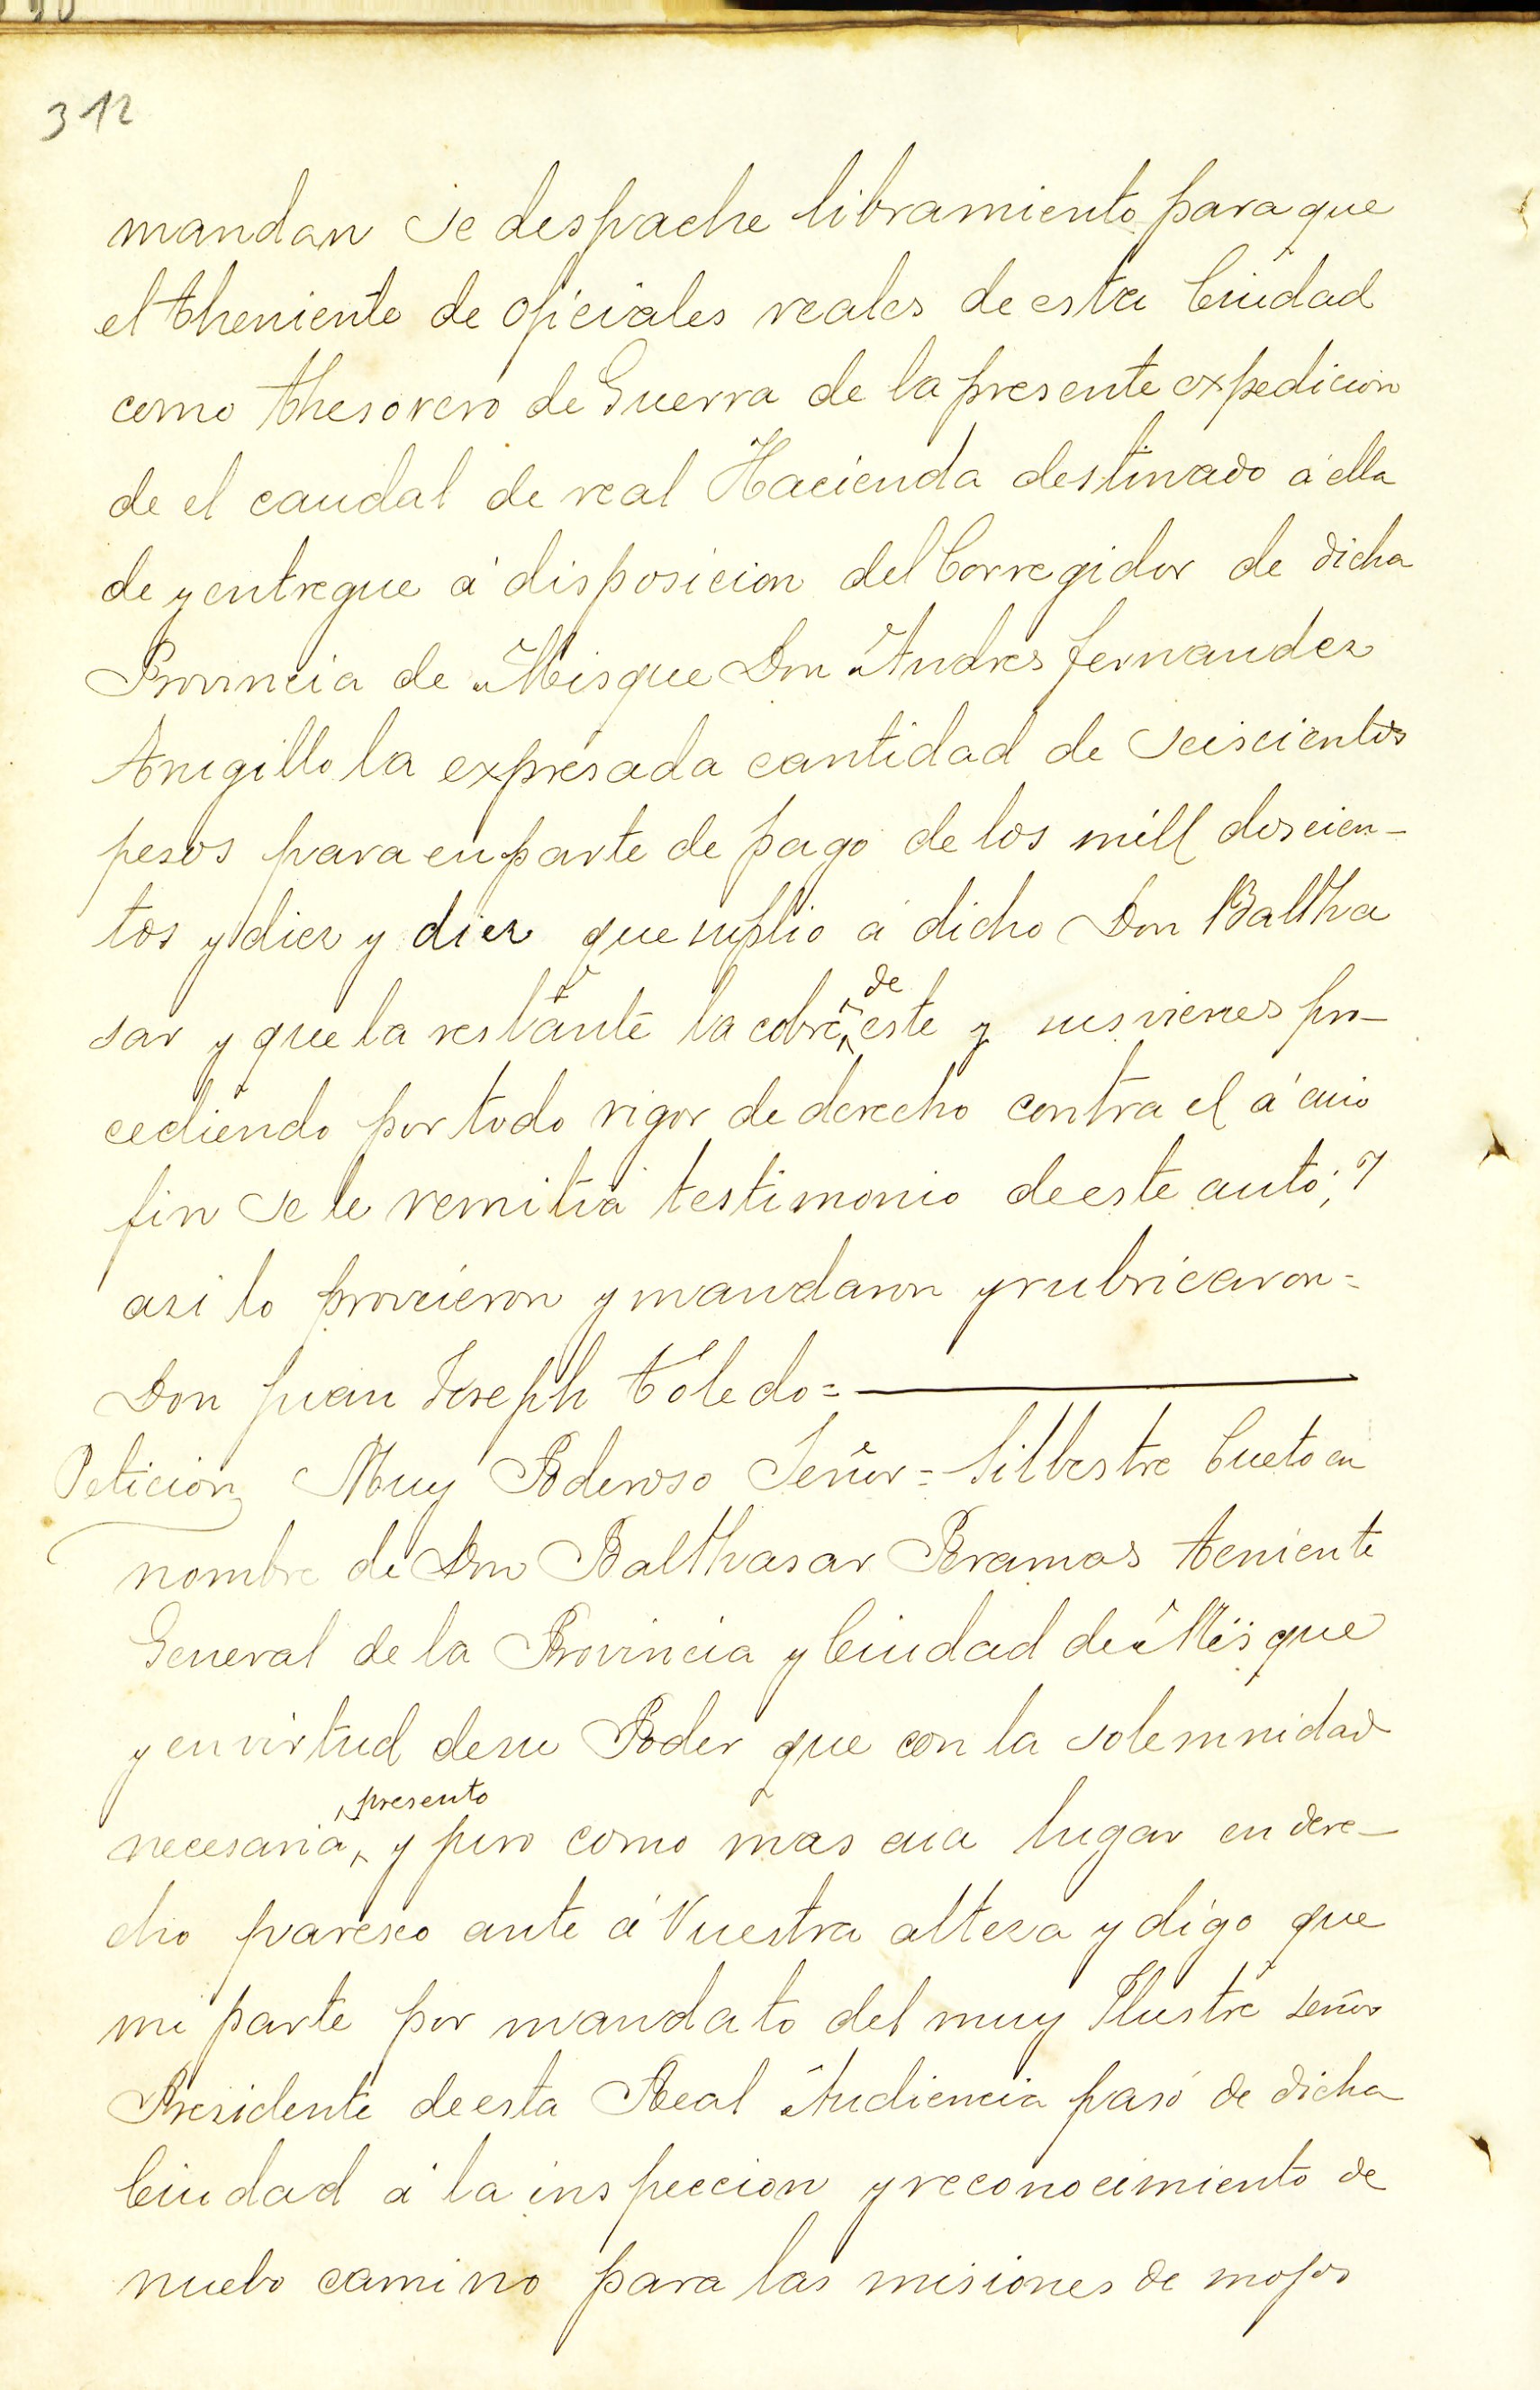 312
mandan se despache libramiento para que
el theniente de oficiales reales de esta Ciudad
como thesorero de Guerra de la presente expedicion
de el caudal de real Hacienda destinado á ella
de y entregue á disposicion del Corregidor de dicha
Provincia de Misque Don Andres fernandez
la expresada cantidad de seiscientos
pesos para en parte de pago de los mill doscien-
tos y diez y diez que suplio á dicho Don Baltha
sar y que la restante la cobre de este y sus vienes pro-
cediendo por todo rigor de derecho contra el á cuio
fin se le remitia testimonio de este auto; y
asi lo proveieron y mandaron y rubricaron=
Don Juan Joseph Toledo=
Peticion Muy Poderoso Señor= Silbestre Cueto en
nombre de Don Balthasar Peramas teniente
General de la Provincia y Ciudad de Misque
y en virtud de su Poder que con la solemnidad
necesaria presento y juro como mas aia lugar en dere-
cho paresco ante á Vuestra alteza y digo que
mi parte por mandato del muy Ilustre señor
Presidente de esta Real Audiencia pasó de dicha
Ciudad á la inspeccion y reconocimiento de
nuebo camino para las misiones de mojos